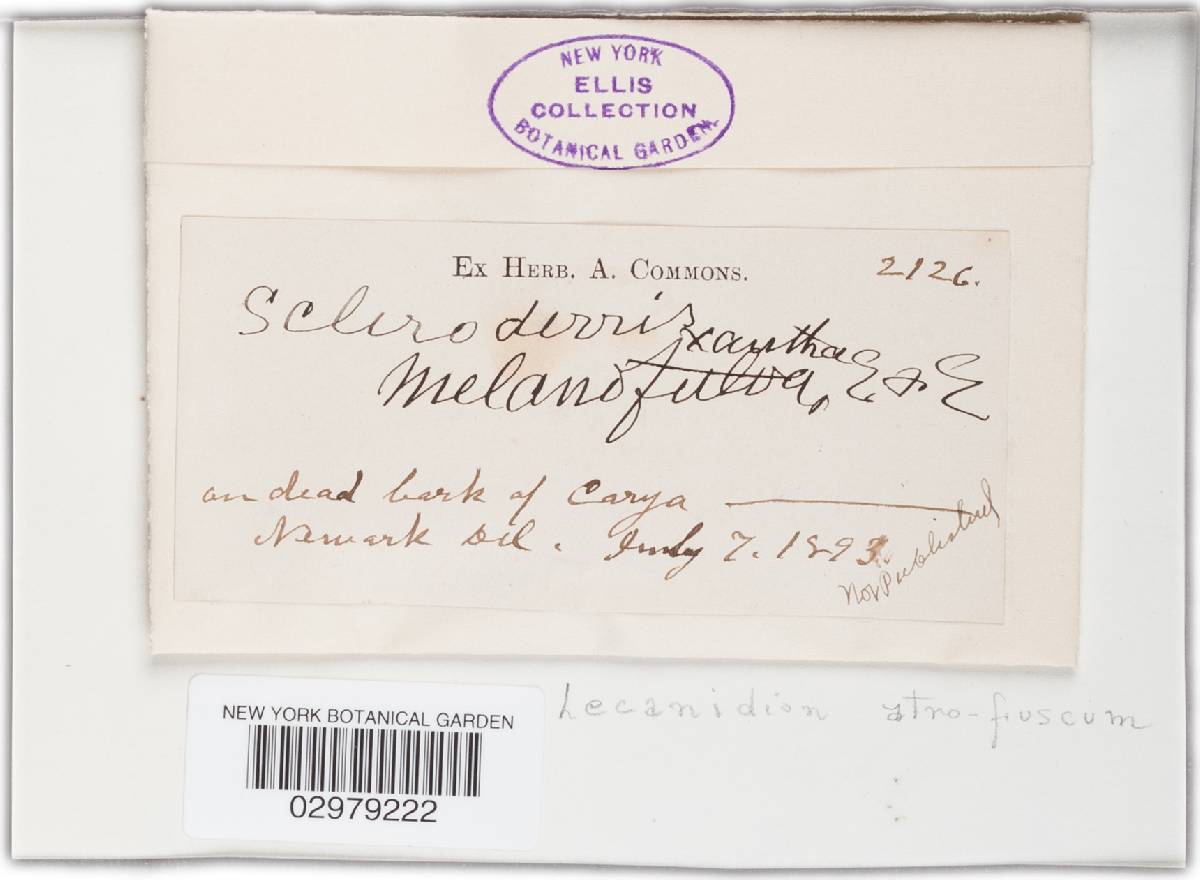 NEW YORK
ELLIS
COLLECTION
BOTANICAL GARDEN
EX HERB. A. COMMONS.
2126.
Scleroderris
xantha
Melanofulva, E & E
on dead bark of Carya
Newark Del. July 7. 1893
Not Published
NEW YORK BOTANICAL GARDEN
02979222
Lecanidion atro-fuscum